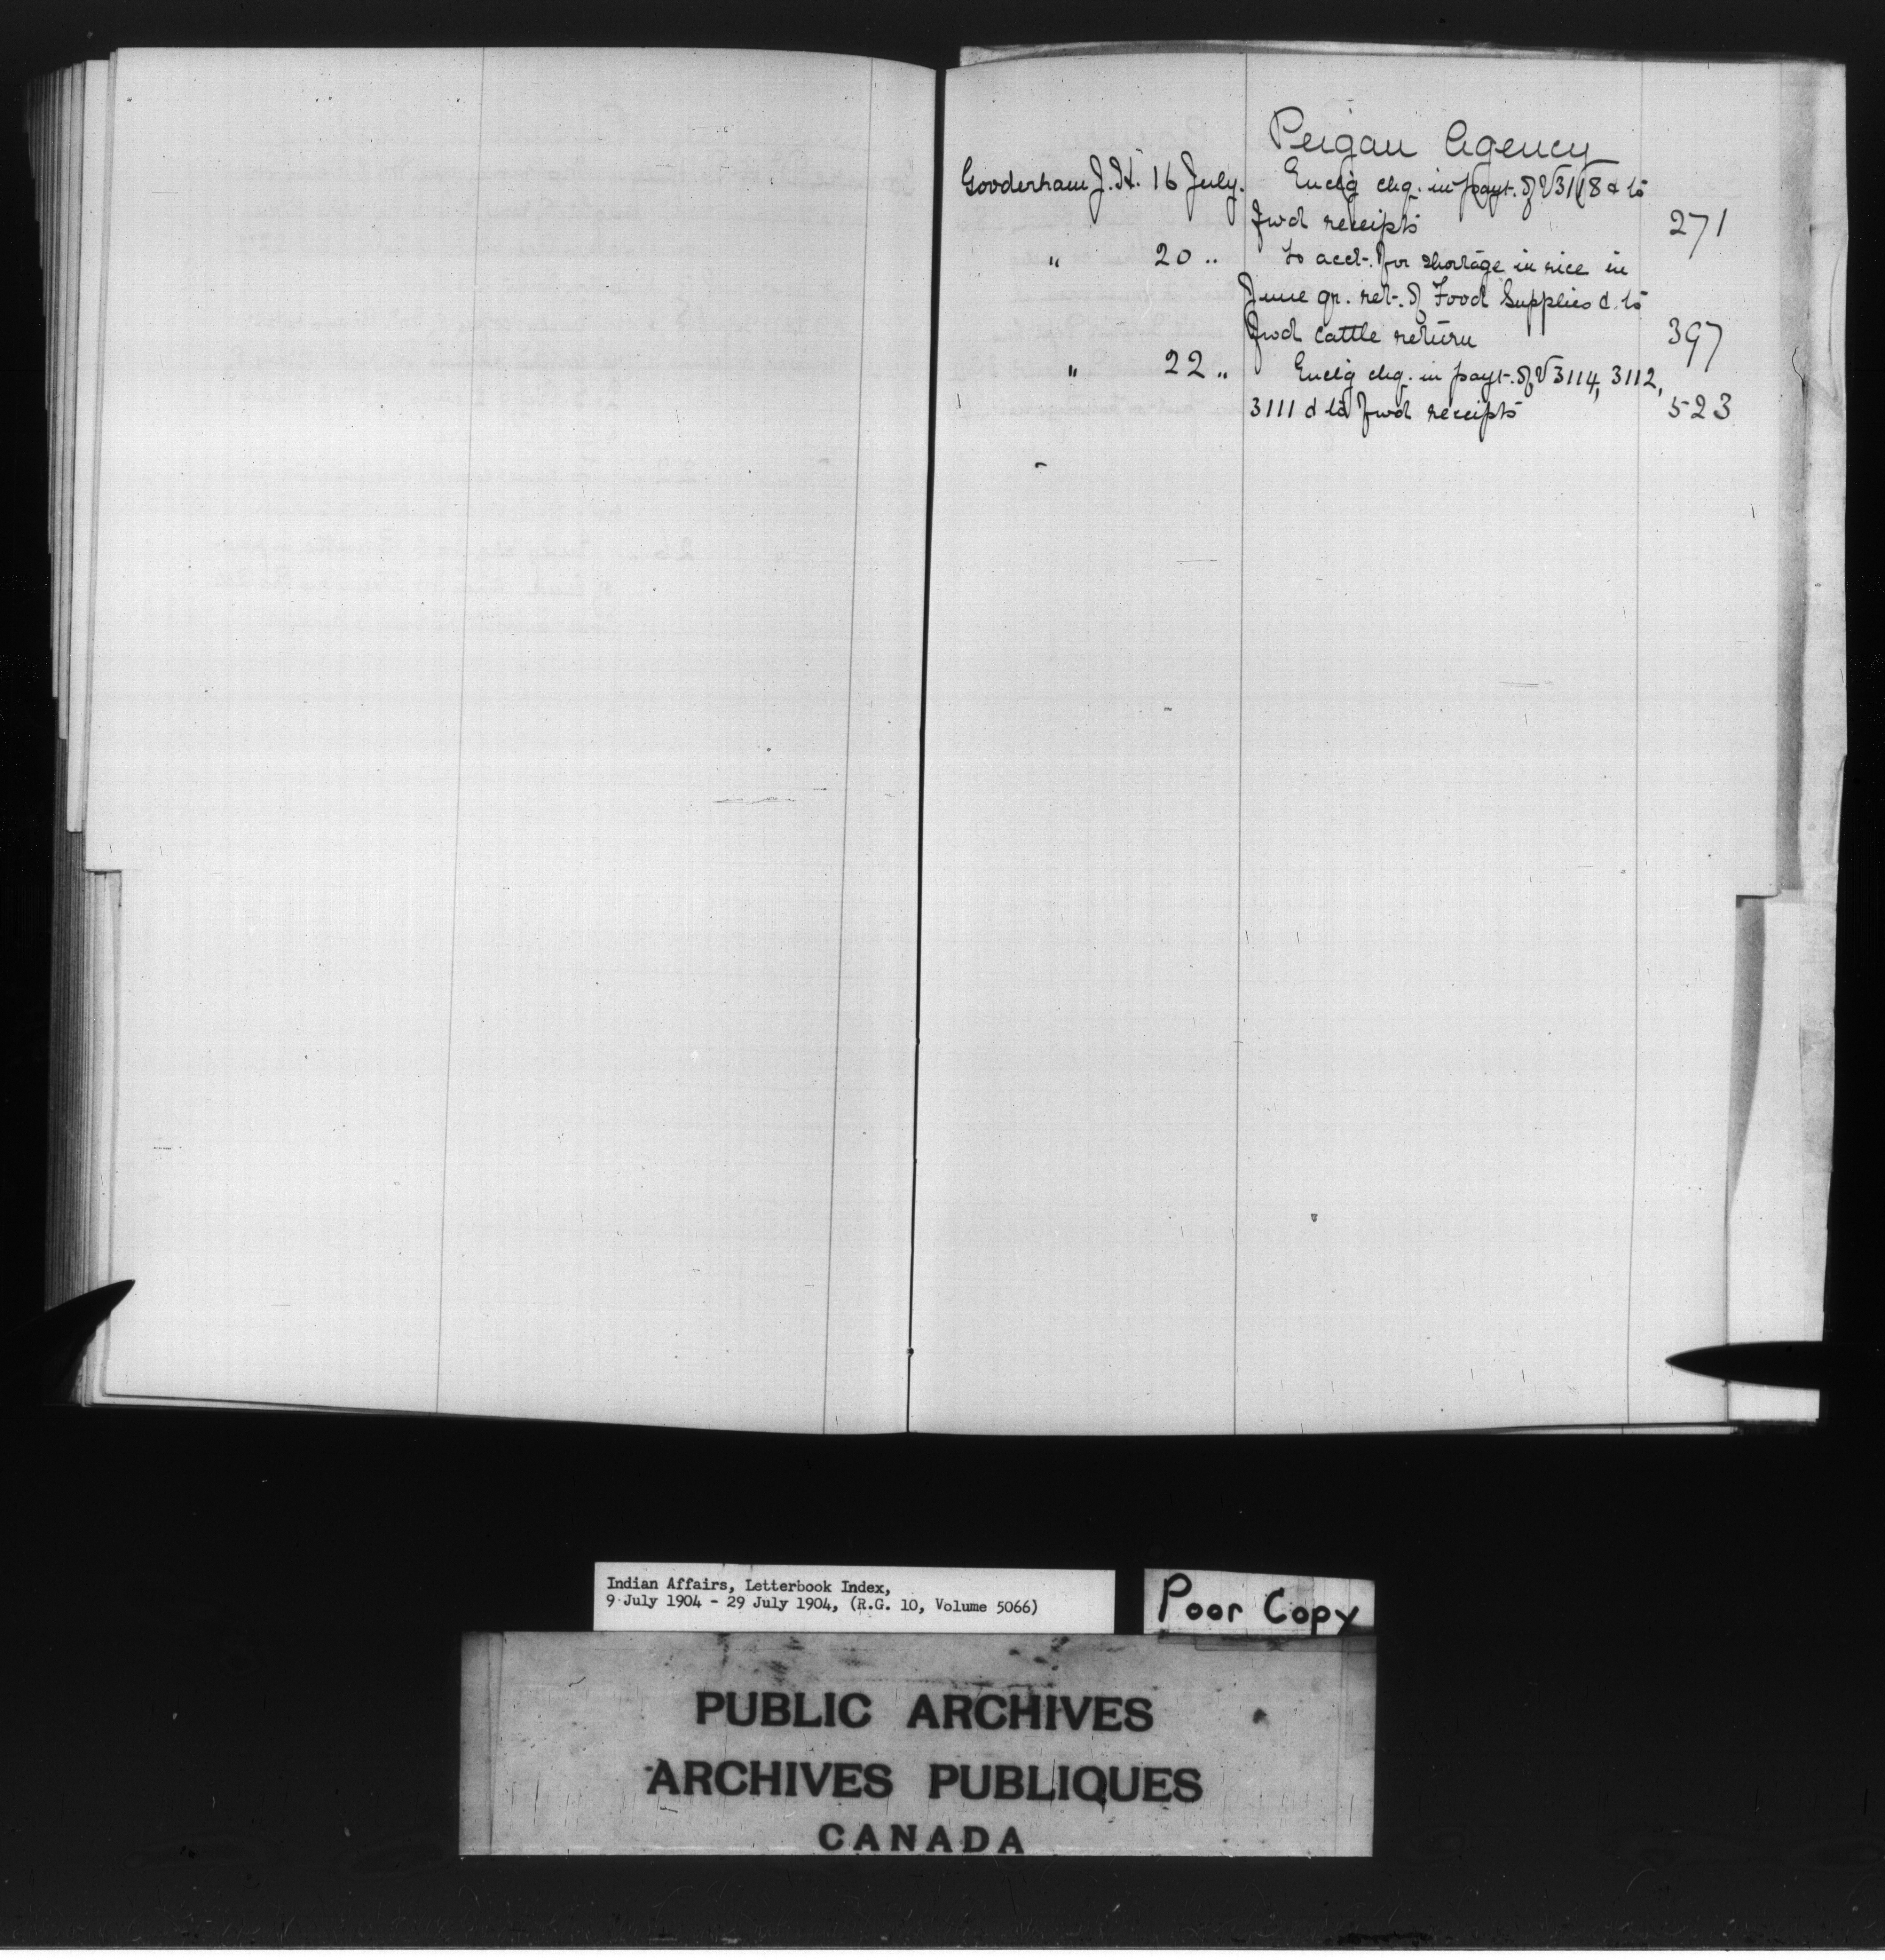 Peigan Agency
Gooderham J.H. 16 July. Enclg chq. in payt. of V3118 & to
fwd receipts 271
" 20 " to acct. for shortage in rice in
June qr. ret. of Food Supplies & to
fwd cattle return 397
" 22 " Enclg chq. in payt. of V3114, 3112,
3111 & to fwd receipts 523
Indian Affairs, Letterbook Index,
9 July 1904 - 29 July 1904, (R.G. 10, Volume 5066)
Poor Copy
PUBLIC ARCHIVES
ARCHIVES PUBLIQUES
CANADA